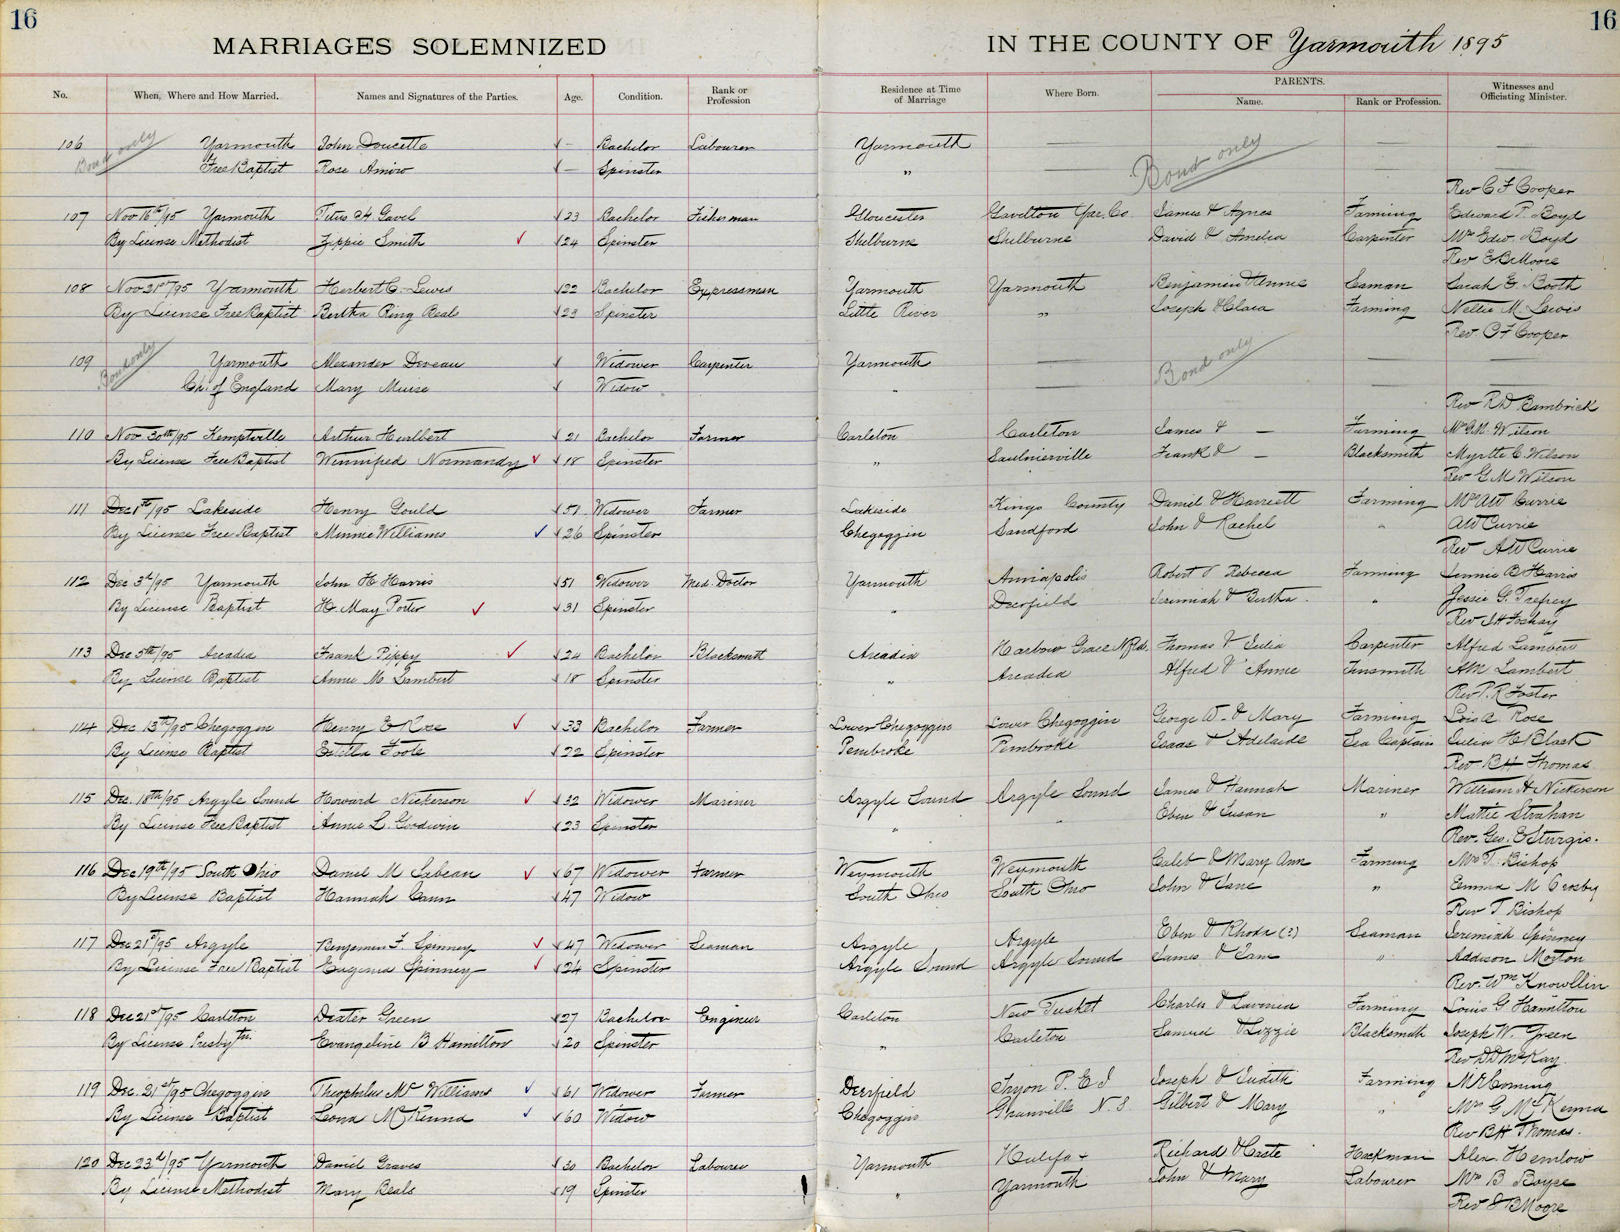 16 16
MARRIAGES SOLEMNIZED IN THE COUNTY OF Yarmouth 1895
No. When, Where and How Married. Names and Signatures of the Parties. Age. Condition. Rank or Profession Residence at Time of Marriage Where Born. PARENTS. Name. Rank or Profession. Witnesses and Officiating Minister.
106 Bond only Yarmouth John Doucette — Bachelor Labourer Yarmouth — Bond only — —
Free Baptist Rose Amiro — Spinster " — —
Rev C F Cooper
107 Nov 16th/95 Yarmouth Titus H Gavel 23 Bachelor Fisherman Gloucester Gavelton Yar. Co. James & Agnes Farming Edward P. Boyd
By License Methodist Zippie Smith 24 Spinster Shelburne Shelburne David & Amelia Carpenter Mrs Edw. Boyd
Rev E B Moore
108 Nov 21st/95 Yarmouth Herbert C. Lewis 22 Bachelor Expressman Yarmouth Yarmouth Benjamin & Annie Seaman Sarah G. Booth
By License Free Baptist Bertha Ring Beals 23 Spinster Little River " Joseph & Clara Farming Nettie M. Lewis
Rev. C F Cooper
109 Bond only Yarmouth Alexander Deveau Widower Carpenter Yarmouth — Bond only — —
Ch. of England Mary Muise Widow " — — —
Rev R D Bambrick
110 Nov. 30th/95 Kemptville Arthur Hurlbert 21 Bachelor Farmer Carleton Carleton James & — Farming Mrs G.M. Wilson
By License Free Baptist Winnifred Normandy 18 Spinster " Saulnierville Frank & — Blacksmith Myrtle C. Wilson
Rev G M Wilson
111 Dec 1st/95 Lakeside Henry Gould 51 Widower Farmer Lakeside Kings County Daniel & Harriett Farming Mrs A W Currie
By License Free Baptist Minnie Williams 26 Spinster Chegoggin Sandford John & Rachel " A W Currie
Rev A W Currie
112 Dec 3d/95 Yarmouth John H Harris 51 Widower Med. Doctor Yarmouth Annapolis Robert & Rebecca Farming Jennie B Harris
By License Baptist H. May Porter 31 Spinster " Deerfield Jeremiah & Bertha " Jessie G. Trefrey
Rev J H Foshay
113 Dec 5th/95 Arcadia Frank Pippy 24 Bachelor Blacksmith Arcadia Harbour Grace Nfld. Thomas & Julia Carpenter Alfred Lambert
By License Baptist Annie M Lambert 18 Spinster " Arcadia Alfred & Annie Tinsmith A M Lambert
Rev P. R Foster
114 Dec. 13th/95 Chegoggin Henry E Rose 33 Bachelor Farmer Lower Chegoggin Lower Chegoggin George W. & Mary Farming Lois A Rose
By License Baptist Foote 22 Spinster Pembroke Pembroke Isaac & Adelaide Sea Captain Julia H Black
Rev. B H Thomas
115 Dec. 18th/95 Argyle Sound Howard Nickerson 32 Widower Mariner Argyle Sound Argyle Sound James & Hannah Mariner William H Nickerson
By License Free Baptist Annie L. Goodwin 23 Spinster " " Eben & Susan " Mattie Strahan
Rev. Geo. E Sturgis.
116 Dec 19th/95 South Ohio Daniel M Sabean 67 Widower Farmer Weymouth Weymouth Caleb & Mary Ann Farming Mrs T. Bishop
By License Baptist Hannah Cann 47 Widow South Ohio South Ohio John & Jane " Emma M Crosby
Rev T Bishop
117 Dec 21st/95 Argyle Benjamin F. Spinney 47 Widower Seaman Argyle Argyle Eben & Rhoda (?) Seaman Jeremiah Spinney
By License Free Baptist Eugenia Spinney 24 Spinster Argyle Sound Argyle Sound James & Jane " Addison Morton
Rev. Wm Knowllin
118 Dec 21st/95 Carleton Dexter Green 27 Bachelor Engineer Carleton New Tusket Charles & Lavenia Farming Louis G Hamilton
By License Presbytn. Evangeline B Hamilton 20 Spinster " Carleton Samuel & Lizzie Blacksmith Joseph W. Green
Rev D D McKay
119 Dec. 21st/95 Chegoggin Theophilus Mc Williams 61 Widower Farmer Deerfield Tryon P. E I Joseph & Judith Farming Mr Corning
By License Baptist Leona McKenna 60 Widow Chegoggin Granville N. S Gilbert & Mary " Mrs G McKenna
Rev B H Thomas.
120 Dec 23d/95 Yarmouth Daniel Graves 30 Bachelor Labourer Yarmouth Halifax Richard & Caste Hackman Alex Hemlow
By License Methodist Mary Beals 19 Spinster " Yarmouth John & Mary Labourer Mrs B Boyce
Rev E B Moore